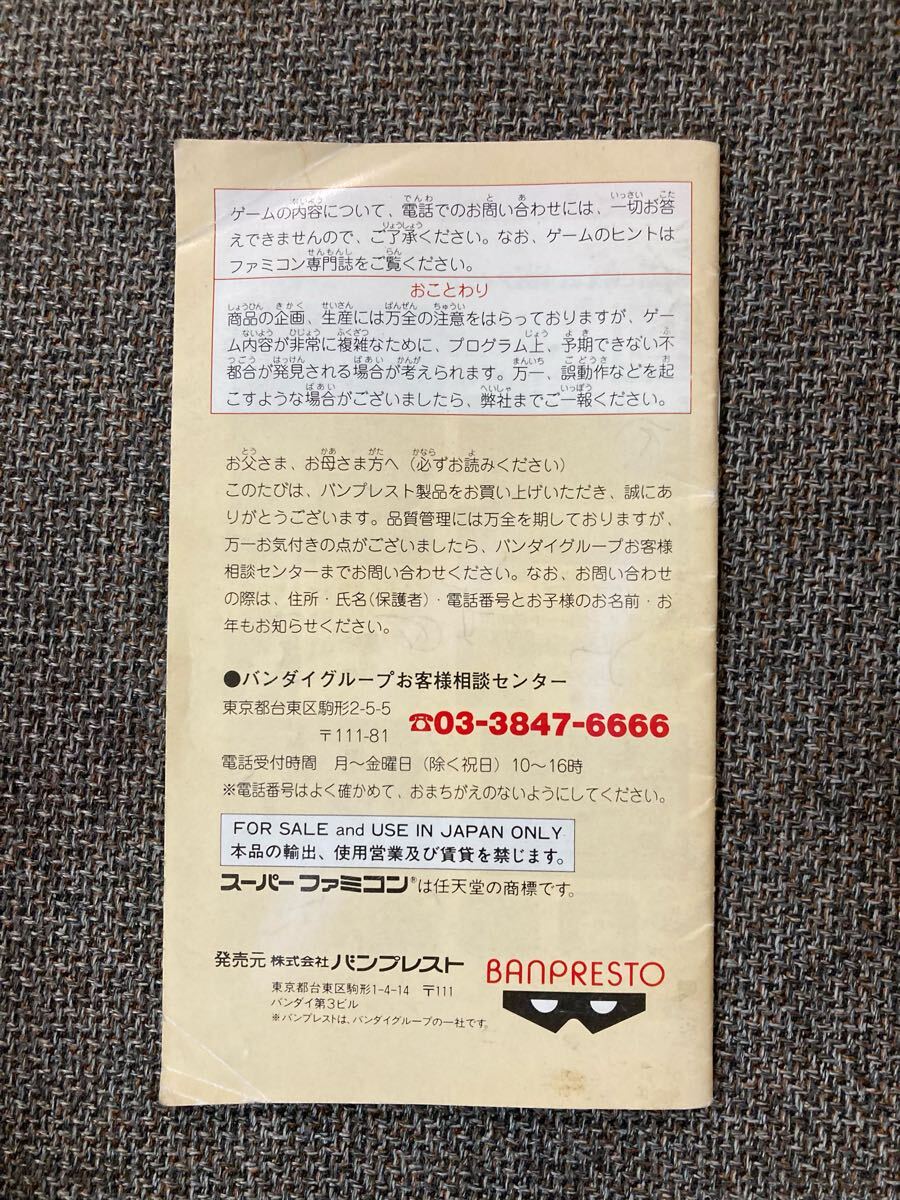 ゲームの内容について、電話でのお問い合わせには、一切お答
えできませんので、ご了承ください。なお、ゲームのヒントは
ファミコン専門誌をご覧ください。
おことわり
商品の企画、生産には万全の注意をはらっておりますが、ゲー
ム内容が非常に複雑なために、プログラム上、予期できない不
都合が発見される場合が考えられます。万一、誤動作などを起
こすような場合がございましたら、弊社までご一報ください。
お父さま、お母さま方へ（必ずお読みください）
このたびは、バンプレスト製品をお買い上げいただき、誠にあ
りがとうございます。品質管理には万全を期しておりますが、
万一お気付きの点がございましたら、バンダイグループお客様
相談センターまでお問い合わせください。なお、お問い合わせ
の際は、住所・氏名（保護者）・電話番号とお子様のお名前・お
年もお知らせください。
●バンダイグループお客様相談センター
東京都台東区駒形2-5-5
〒111-81
☎03-3847-6666
電話受付時間 月〜金曜日（除く祝日）10〜16時
※電話番号はよく確かめて、おまちがえのないようにしてください。
FOR SALE and USE IN JAPAN ONLY
本品の輸出、使用営業及び賃貸を禁じます。
スーパーファミコン®は任天堂の商標です。
発売元 株式会社バンプレスト
東京都台東区駒形1-4-14 〒111
バンダイ第3ビル
※バンプレストは、バンダイグループの一社です。
BANPRESTO